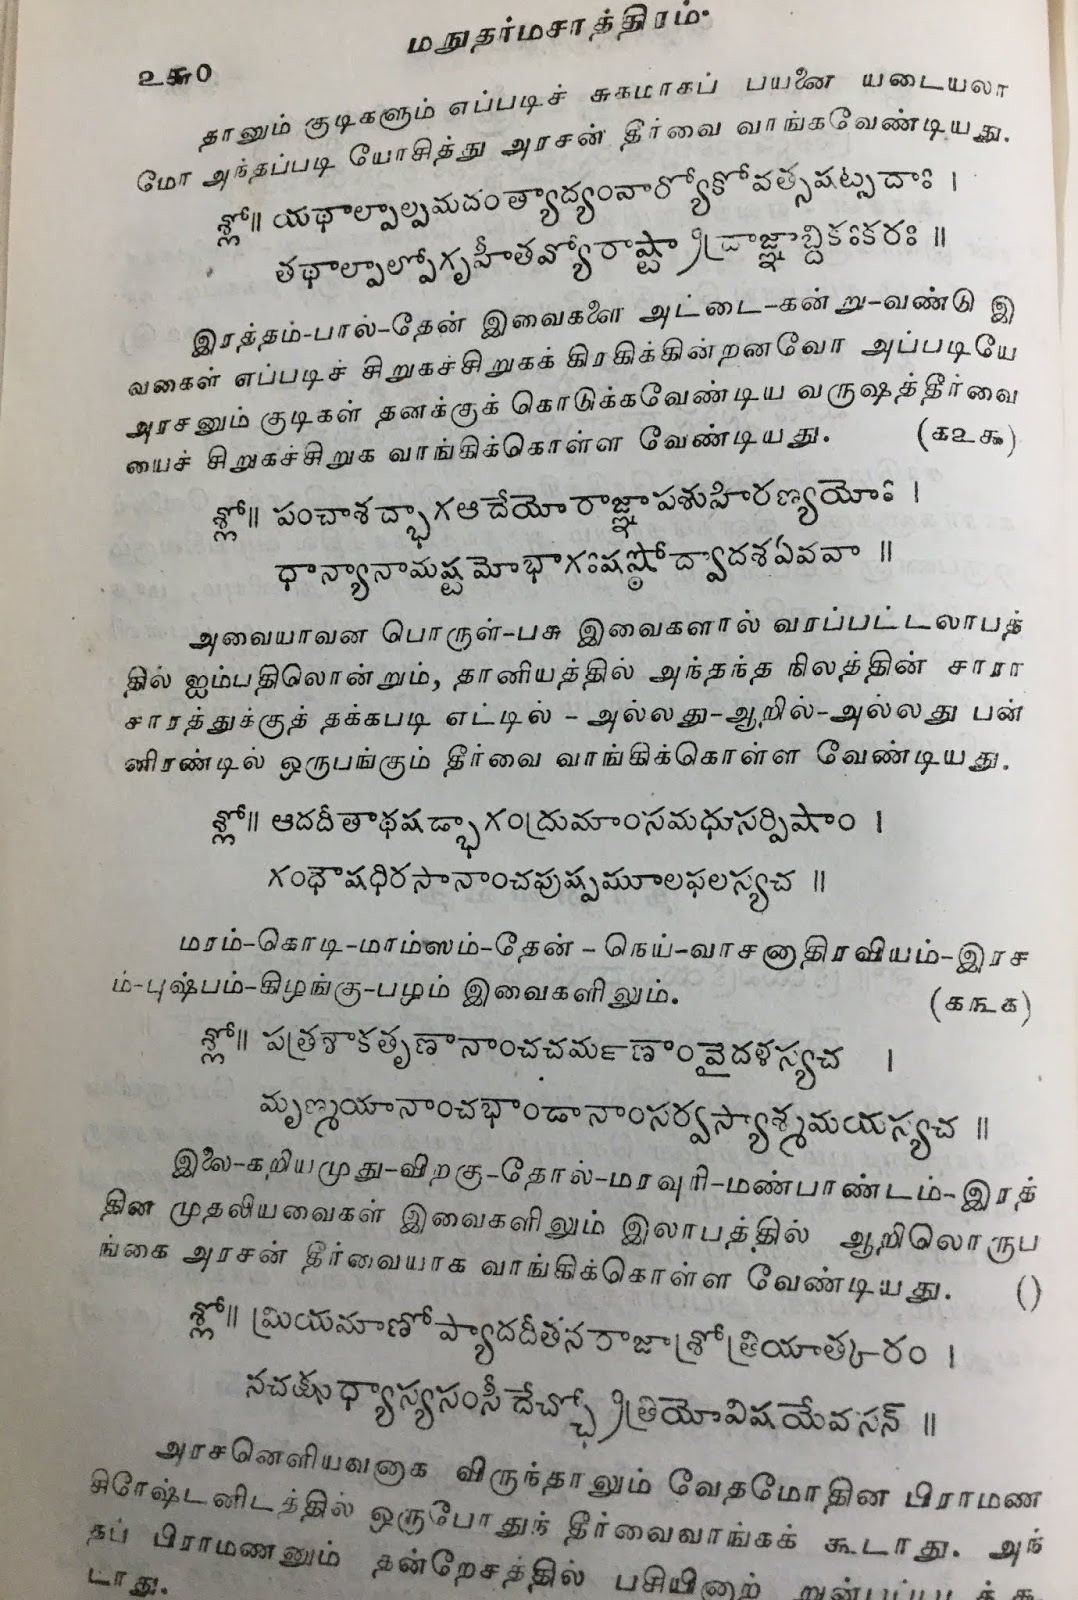 மநுதர்மசாத்திரம்.
௨௬0
தானும் குடிகளும் எப்படிச் சுகமாகப் பயனை யடையலா
மோ அந்தப்படி யோசித்து அரசன் தீர்வை வாங்கவேண்டியது.
శ్లో॥ యథాల్పాల్పమదంత్యాద్యంవార్యోకోవత్సషట్పదాః ।
తథాల్పాల్పోగృహీతవ్యోరాష్ట్రాద్రాజ్ఞాబ్దికఃకరః ॥
இரத்தம்-பால்-தேன் இவைகளை அட்டை-கன்று-வண்டு இ
வகைள் எப்படிச் சிறுகச்சிறுகக் கிரகிக்கின்றனவோ அப்படியே
அரசனும் குடிகள் தனக்குக் கொடுக்கவேண்டிய வருஷத்தீர்வை
யைச் சிறுகச்சிறுக வாங்கிக்கொள்ள வேண்டியது. (௧௨௯)
శ్లో॥ పంచాశద్భాగఆదేయోరాజ్ఞాపశుహిరణ్యయోః ।
ధాన్యానామష్టమోభాగఃషష్ఠోద్వాదశఏవవా ॥
அவையாவன பொருள்-பசு இவைகளால் வரப்பட்டலாபத்
தில் ஐம்பதிலொன்றும், தானியத்தில் அந்தந்த நிலத்தின் சாரா
சாரத்துக்குத் தக்கபடி எட்டில் - அல்லது-ஆறில்-அல்லது பன்
னிரண்டில் ஒருபங்கும் தீர்வை வாங்கிக்கொள்ள வேண்டியது.
శ్లో॥ ఆదదీతాథషడ్భాగంద్రుమాంసమధుసర్పిషాం ।
గంధౌషధిరసానాంచపుష్పమూలఫలస్యచ ॥
மரம்-கொடி-மாம்ஸம்-தேன் - நெய்-வாசனாதிரவியம்-இரச
ம்-புஷ்பம்-கிழங்கு-பழம் இவைகளிலும். (௧௩௧)
శ్లో॥ పత్రశాకతృణానాంచచర్మణాంవైదళస్యచ ।
మృణ్మయానాంచభాండానాంసర్వస్యాశ్మమయస్యచ ॥
இலை-கறியமுது-விறகு-தோல்-மரவுரி-மண்பாண்டம்-இரத்
தின முதலியவைகள் இவைகளிலும் இலாபத்தில் ஆறிலொருப
ங்கை அரசன் தீர்வையாக வாங்கிக்கொள்ள வேண்டியது. ()
శ్లో॥ మ్రియమాణోప్యాదదీతనరాజాశ్రోత్రియాత్కరం ।
నచక్షుధ్యాస్యసంసీదేచ్ఛ్రోత్రియోవిషయేవసన్ ॥
அரசனெளியவனாக விருந்தாலும் வேதமோதின பிராமண
சிரேஷ்டனிடத்தில் ஒருபோதுந் தீர்வைவாங்கக் கூடாது. அந்
தப் பிராமணனும் தன்றேசத்தில் பசியினாற்
டாது.